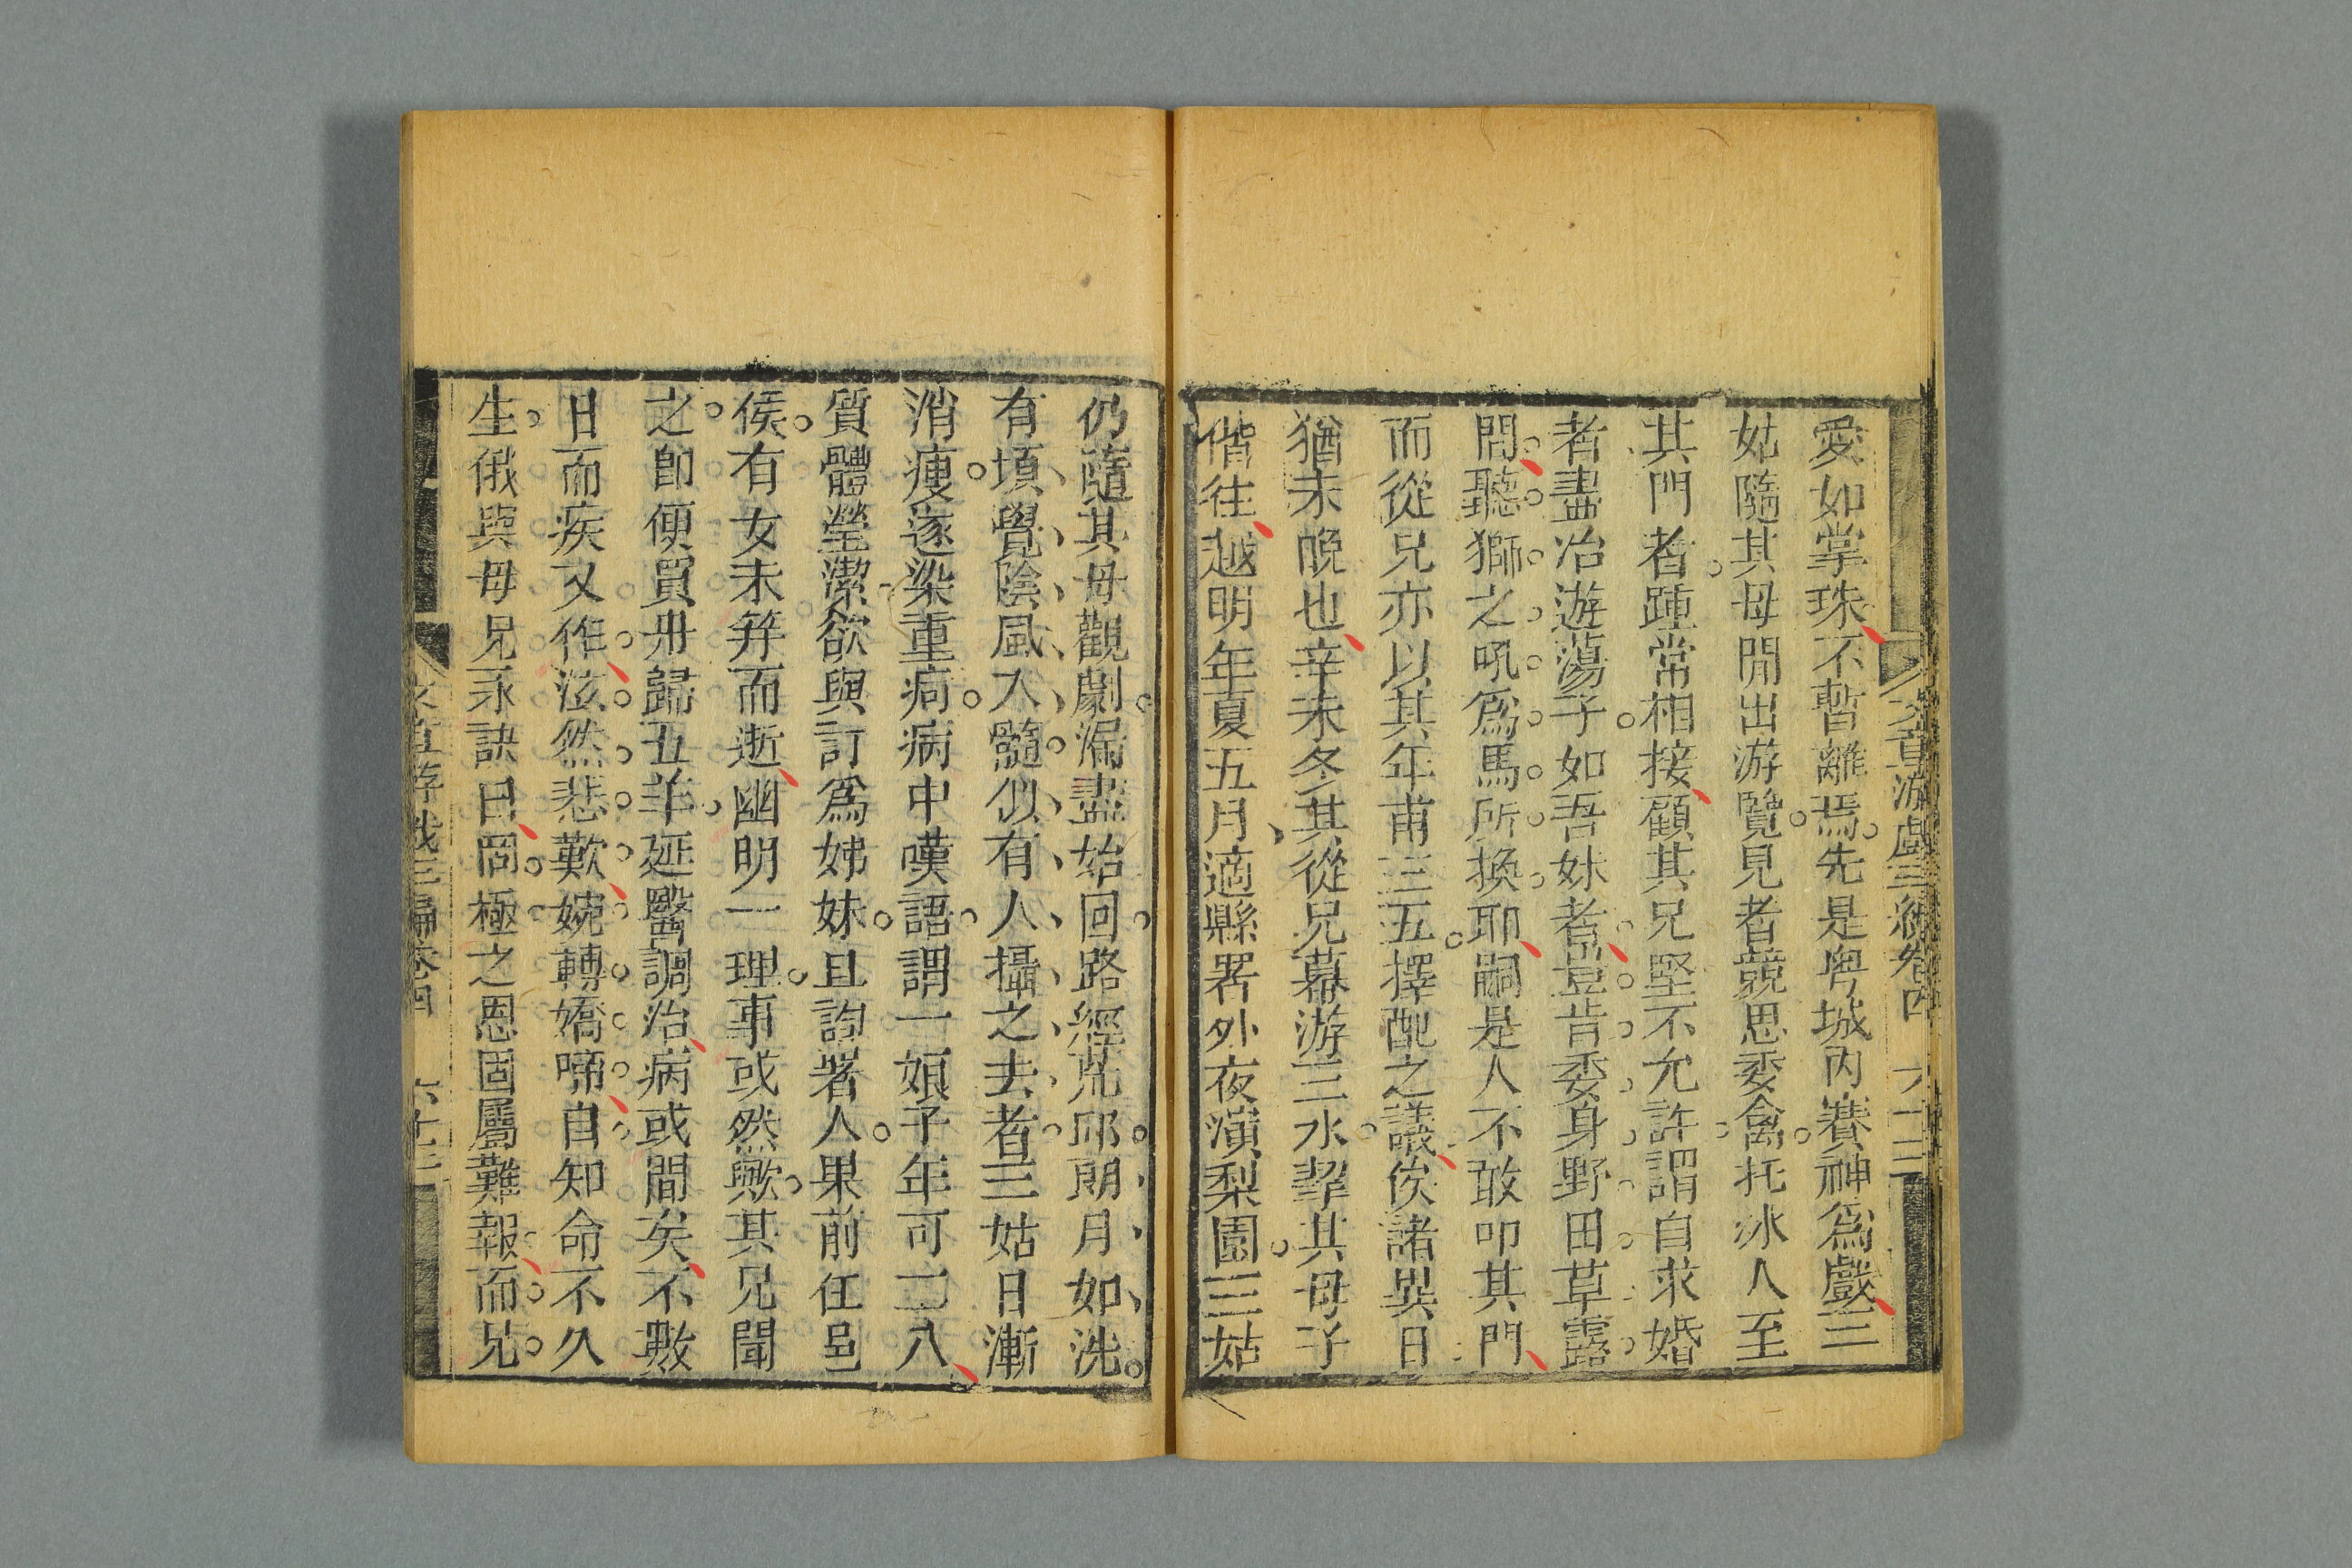 愛如掌珠不暫離焉先是粵城內賽神爲戲三
姑隨其母閒出游覽見者競思委禽托冰人至
其門者踵常相接顧其兄堅不允許謂自求婚
者盡冶遊蕩子如吾妹者豈肯委身野田草露
間聽獅之吼爲馬所換耶嗣是人不敢叩其門
而從兄亦以其年甫三五擇配之議俟諸異日
猶未晚也辛未冬其從兄幕游三水挈其母子
偕往越明年夏五月適縣署外夜演梨園三姑
仍隨其母觀劇漏盡始回路經荒邱朗月如洗
有頃覺陰風入髓似有人攝之去者三姑日漸
消瘦遂染重疴病中嘆語謂一娘子年可二八
質體瑩潔欲與訂爲姊妹且詢署人果前任邑
侯有女未笄而逝幽明一理事或然歟其兄聞
之即便買舟歸五羊延醫調治病或間矣不數
日而疾又作泫然悲歎婉轉嬌啼自知命不久
生俄與母兄永訣曰罔極之恩固屬難報而兄